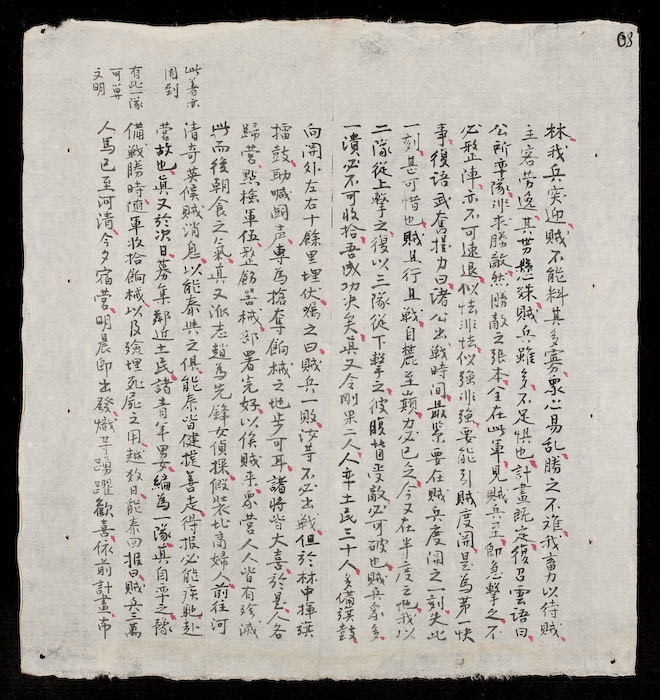 68
林我兵突迎賊不能料其多寡衆心易乱勝之不難我畜力以待賊
主客劳逸其势懸殊賊兵雖多不足惧也計畫既定復召雲語曰
公所率隊非求勝敵然勝敵之張本全在此軍見賊兵至即急擊之不
必整陣亦不可速退似怯非怯似強非強要能引賊度関是為第一快
事復語武奮揑力曰諸公出戦時間最緊要在賊兵度関之一刻失此
一刻甚可惜也賊且行且戦自麓至巔力必已乏今又在半度之地我以
二隊從上擊之復以三隊從下擊之彼腹背受敵必可破也賊兵衆多
一潰必不可收拾吾成功决矣真又令剛果二人人率土民三十人多備旗鼓
向関外左右十餘里埋伏囑之曰賊兵一敗汝等不必出戦但於林中揮旗
擂鼓助喊鬪声專為搶奪餉械之地步可耳諸將皆大喜於是人各
歸營點檢軍伍整飭器械部署完好以俟賊来衆營人人皆有殄滅
此而後朝食之氣真又派志趙為先鋒女偵探假裝北商婦人前往河
清奇英候賊消息以能泰共之俱能泰皆健捷善走得報必能疾馳赴
營故也真又於次日募集鄰近土民諸青年男女編為一隊真自率之豫
備戦勝時随軍收拾餉械以及殮埋死屍之用越数日能泰回报曰賊兵三萬
人馬已至河清今夕宿營明晨即出發熾等踴躍歡喜依前計畫布
此著亦
周到
有此一隊
可算
文明